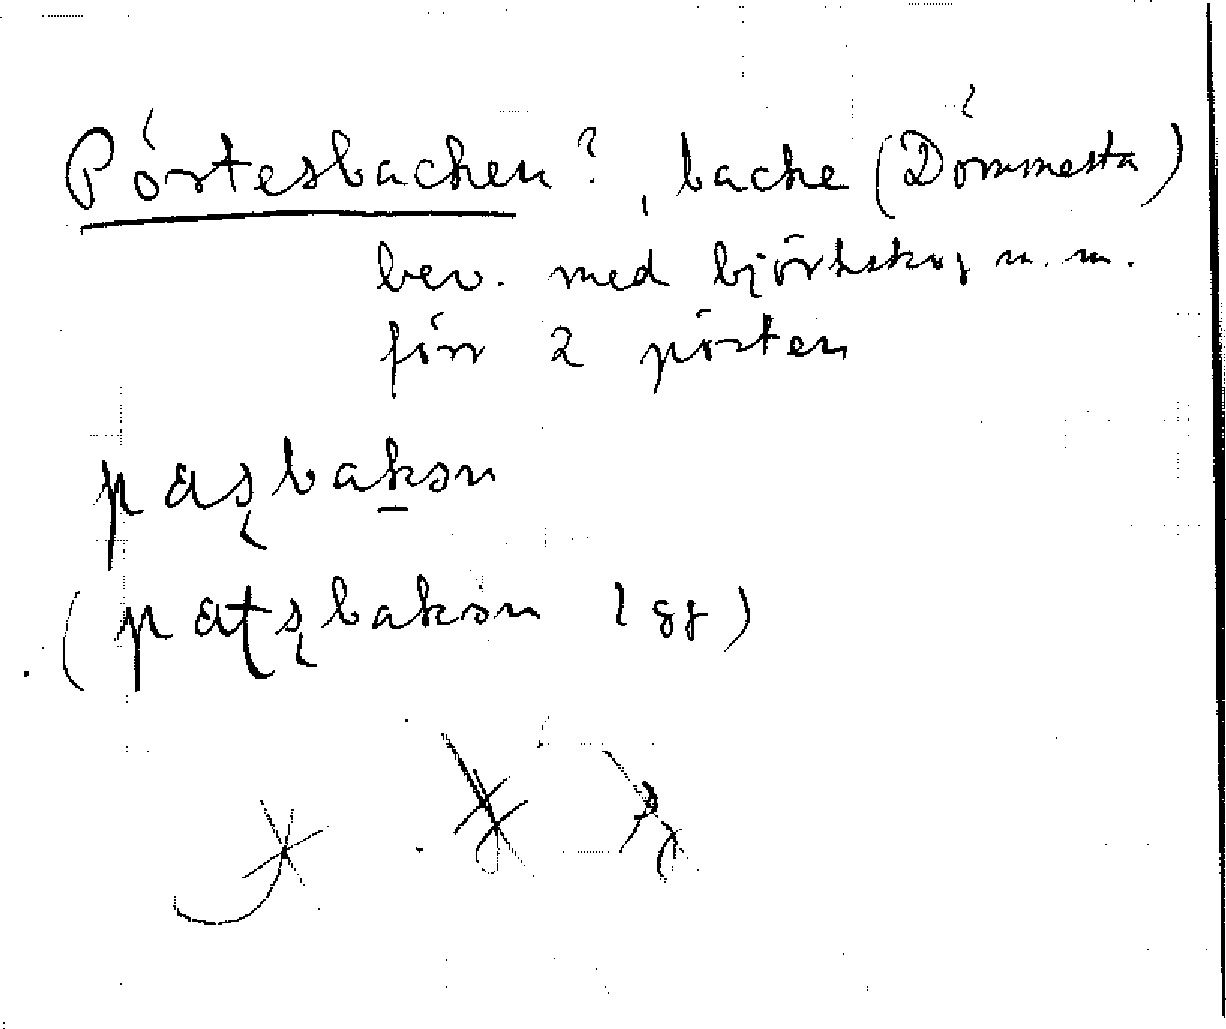 Pörtesbacken?, backe (Dömmesta)
bev. med björkskog m. m.
förr 2 pörten
pasbakən
(patsbakən